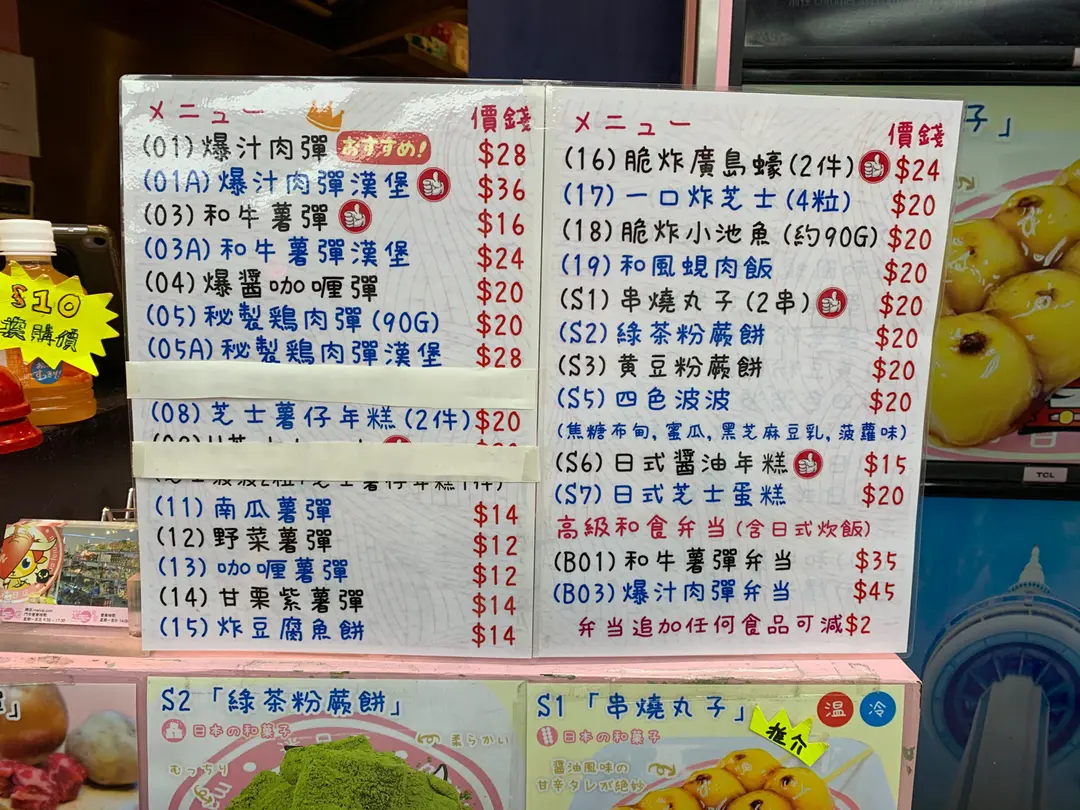 メニュー 價錢
(01) 爆汁肉彈 おすすめ! $28
(01A) 爆汁肉彈漢堡 $36
(03) 和牛薯彈 $16
(03A) 和牛薯彈漢堡 $24
(04) 爆醬咖喱彈 $20
(05) 秘製鶏肉彈 (90G) $20
(05A) 秘製鶏肉彈漢堡 $28
(08) 芝士薯仔年糕 (2件) $20
(11) 南瓜薯彈 $14
(12) 野菜薯彈 $12
(13) 咖喱薯彈 $12
(14) 甘栗紫薯彈 $14
(15) 炸豆腐魚餅 $14
メニュー 價錢
(16) 脆炸廣島蠔 (2件) $24
(17) 一口炸芝士 (4粒) $20
(18) 脆炸小池魚 (約90G) $20
(19) 和風蜆肉飯 $20
(S1) 串燒丸子 (2串) $20
(S2) 綠茶粉蕨餅 $20
(S3) 黄豆粉蕨餅 $20
(S5) 四色波波 $20
(焦糖布甸, 蜜瓜, 黑芝麻豆乳, 菠蘿味)
(S6) 日式醬油年糕 $15
(S7) 日式芝士蛋糕 $20
高級和食弁当 (含日式炊飯)
(B01) 和牛薯彈弁当 $35
(B03) 爆汁肉彈弁当 $45
弁当追加任何食品可減$2
$10
換購價
子」
TCL
S2「綠茶粉蕨餅」
日本の和菓子
柔らかい
むっちり
S1「串燒丸子」
温 冷
推介
日本の和菓子
醤油風味の
甘辛タレが絶妙